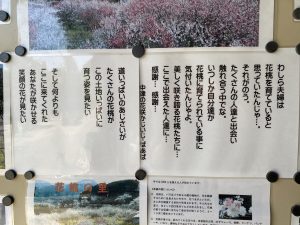 わしら夫婦は
花桃を育てていると
思っていたんじゃ…。
それがのう、
たくさんの人達と出会い
触れ合う中でな、
いつしか自分達が
花桃に育てられている事に
気付いたんじゃよ。
美しく咲き誇る花桃たちに…
ここで出会えた人達に…
感謝…感謝…
道いっぱいのあじさいが
たくさんの花桃が
この土地いっぱいに
育つ姿を見たい
そし何よりも
ここに来てくれた
あなたが咲かせる
笑顔の花が見たい
花桃の里